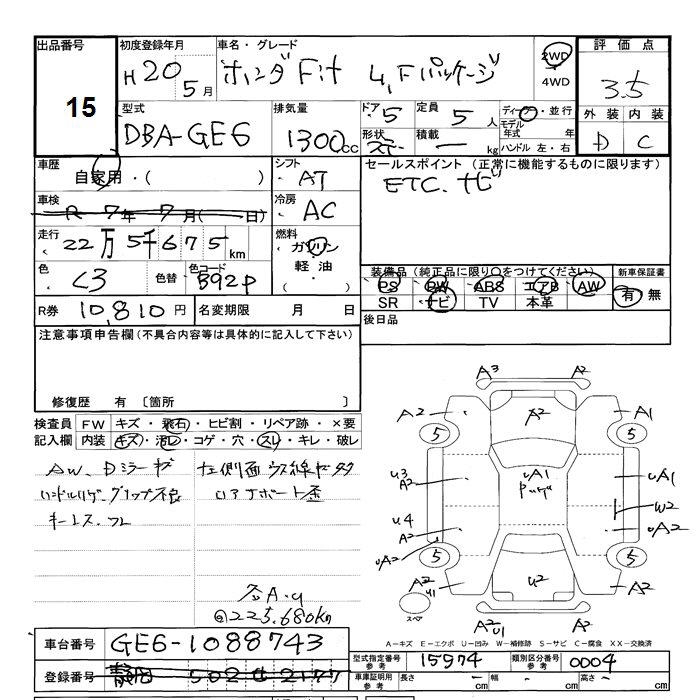 出品番号 初度登録年月 車名・グレード 2WD 4WD 評価点
15
H 20 5月 ホンダ Fit L,Fパッケージ 3.5
型式 排気量 ドア 5 定員 5人 ディーラー・並行 モデル 年式 年 外装 内装
DBA-GE6 1300cc 形状 積載 ー kg ハンドル 左・右 D C
車歴 自家用・( ) シフト・AT セールスポイント (正常に機能するものに限ります)
ETC. ナビ
車検 R 7年 7月( 日) 冷房・AC
走行・22万5千675km 燃料・ガソリン 軽油・( )
色・くろ 色替 色コード B92P
装備品(純正品に限り○をつけてください) 新車保証書
PS PW ABS エアB AW 有・無
SR ナビ TV 本革
R券 10,810円 名変期限 月 日 後日品
注意事項申告欄(不具合内容等は具体的に記入して下さい)
修復歴 有 〔箇所 〕
検査員 記入欄
FW キズ・飛石・ヒビ割・リペア跡・×要
内装 キズ・汚レ・コゲ・穴・スレ・キレ・破レ
AW、Dミラーキズ
キーレス
A・U
@225,680km
A3 A2
A2 A2 A1
5 5
U3 A2 UA1 UA1
U4 A2 W2
UA2 UA2
5 5
A2 U1 U2 A2
スペア
A2 U1 A2
A-キズ E-エクボ U-凹み W-補修跡 S-サビ C-腐食 XX-交換済
車台番号 GE6-1088743
型式指定番号 参考 15974 類別区分番号 参考 0004
登録番号 静岡 502 2177
車庫証明用 参考 長さ ー cm 幅 ー cm 高さ ー cm